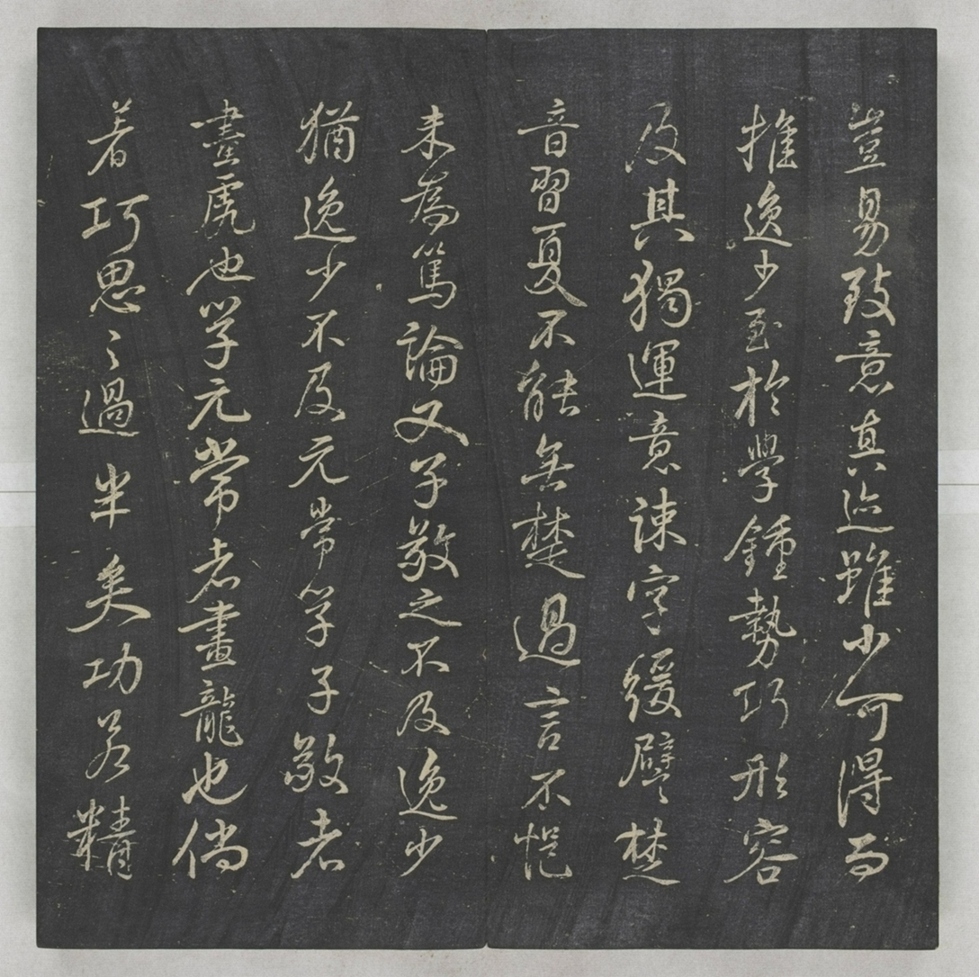 豈易致意真迹雖少可得而
推逸少至於學鍾勢巧形容
及其獨運意疎字緩譬楚
音習夏不能無楚過言不悒
未為篤論又子敬之不及逸少
猶逸少不及元常學子敬者
畫虎也學元常者畫龍也倘
着巧思々過半矣功若精